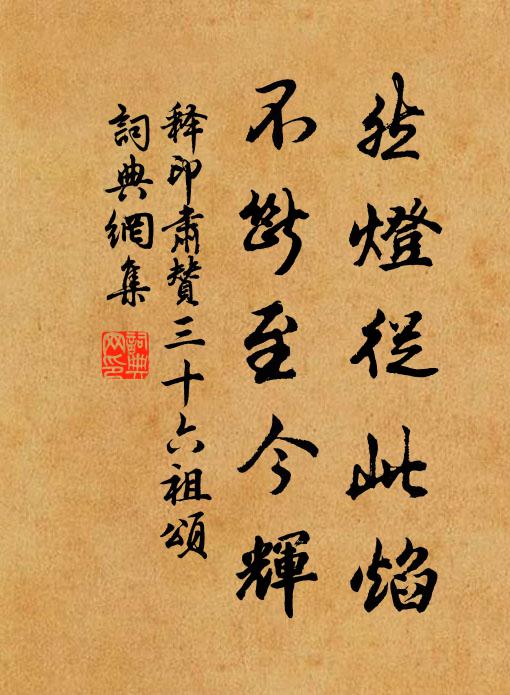 然燈從此焰
不斷至今輝
釋印肅贊三十六祖頌
詞典網集
詞典网印